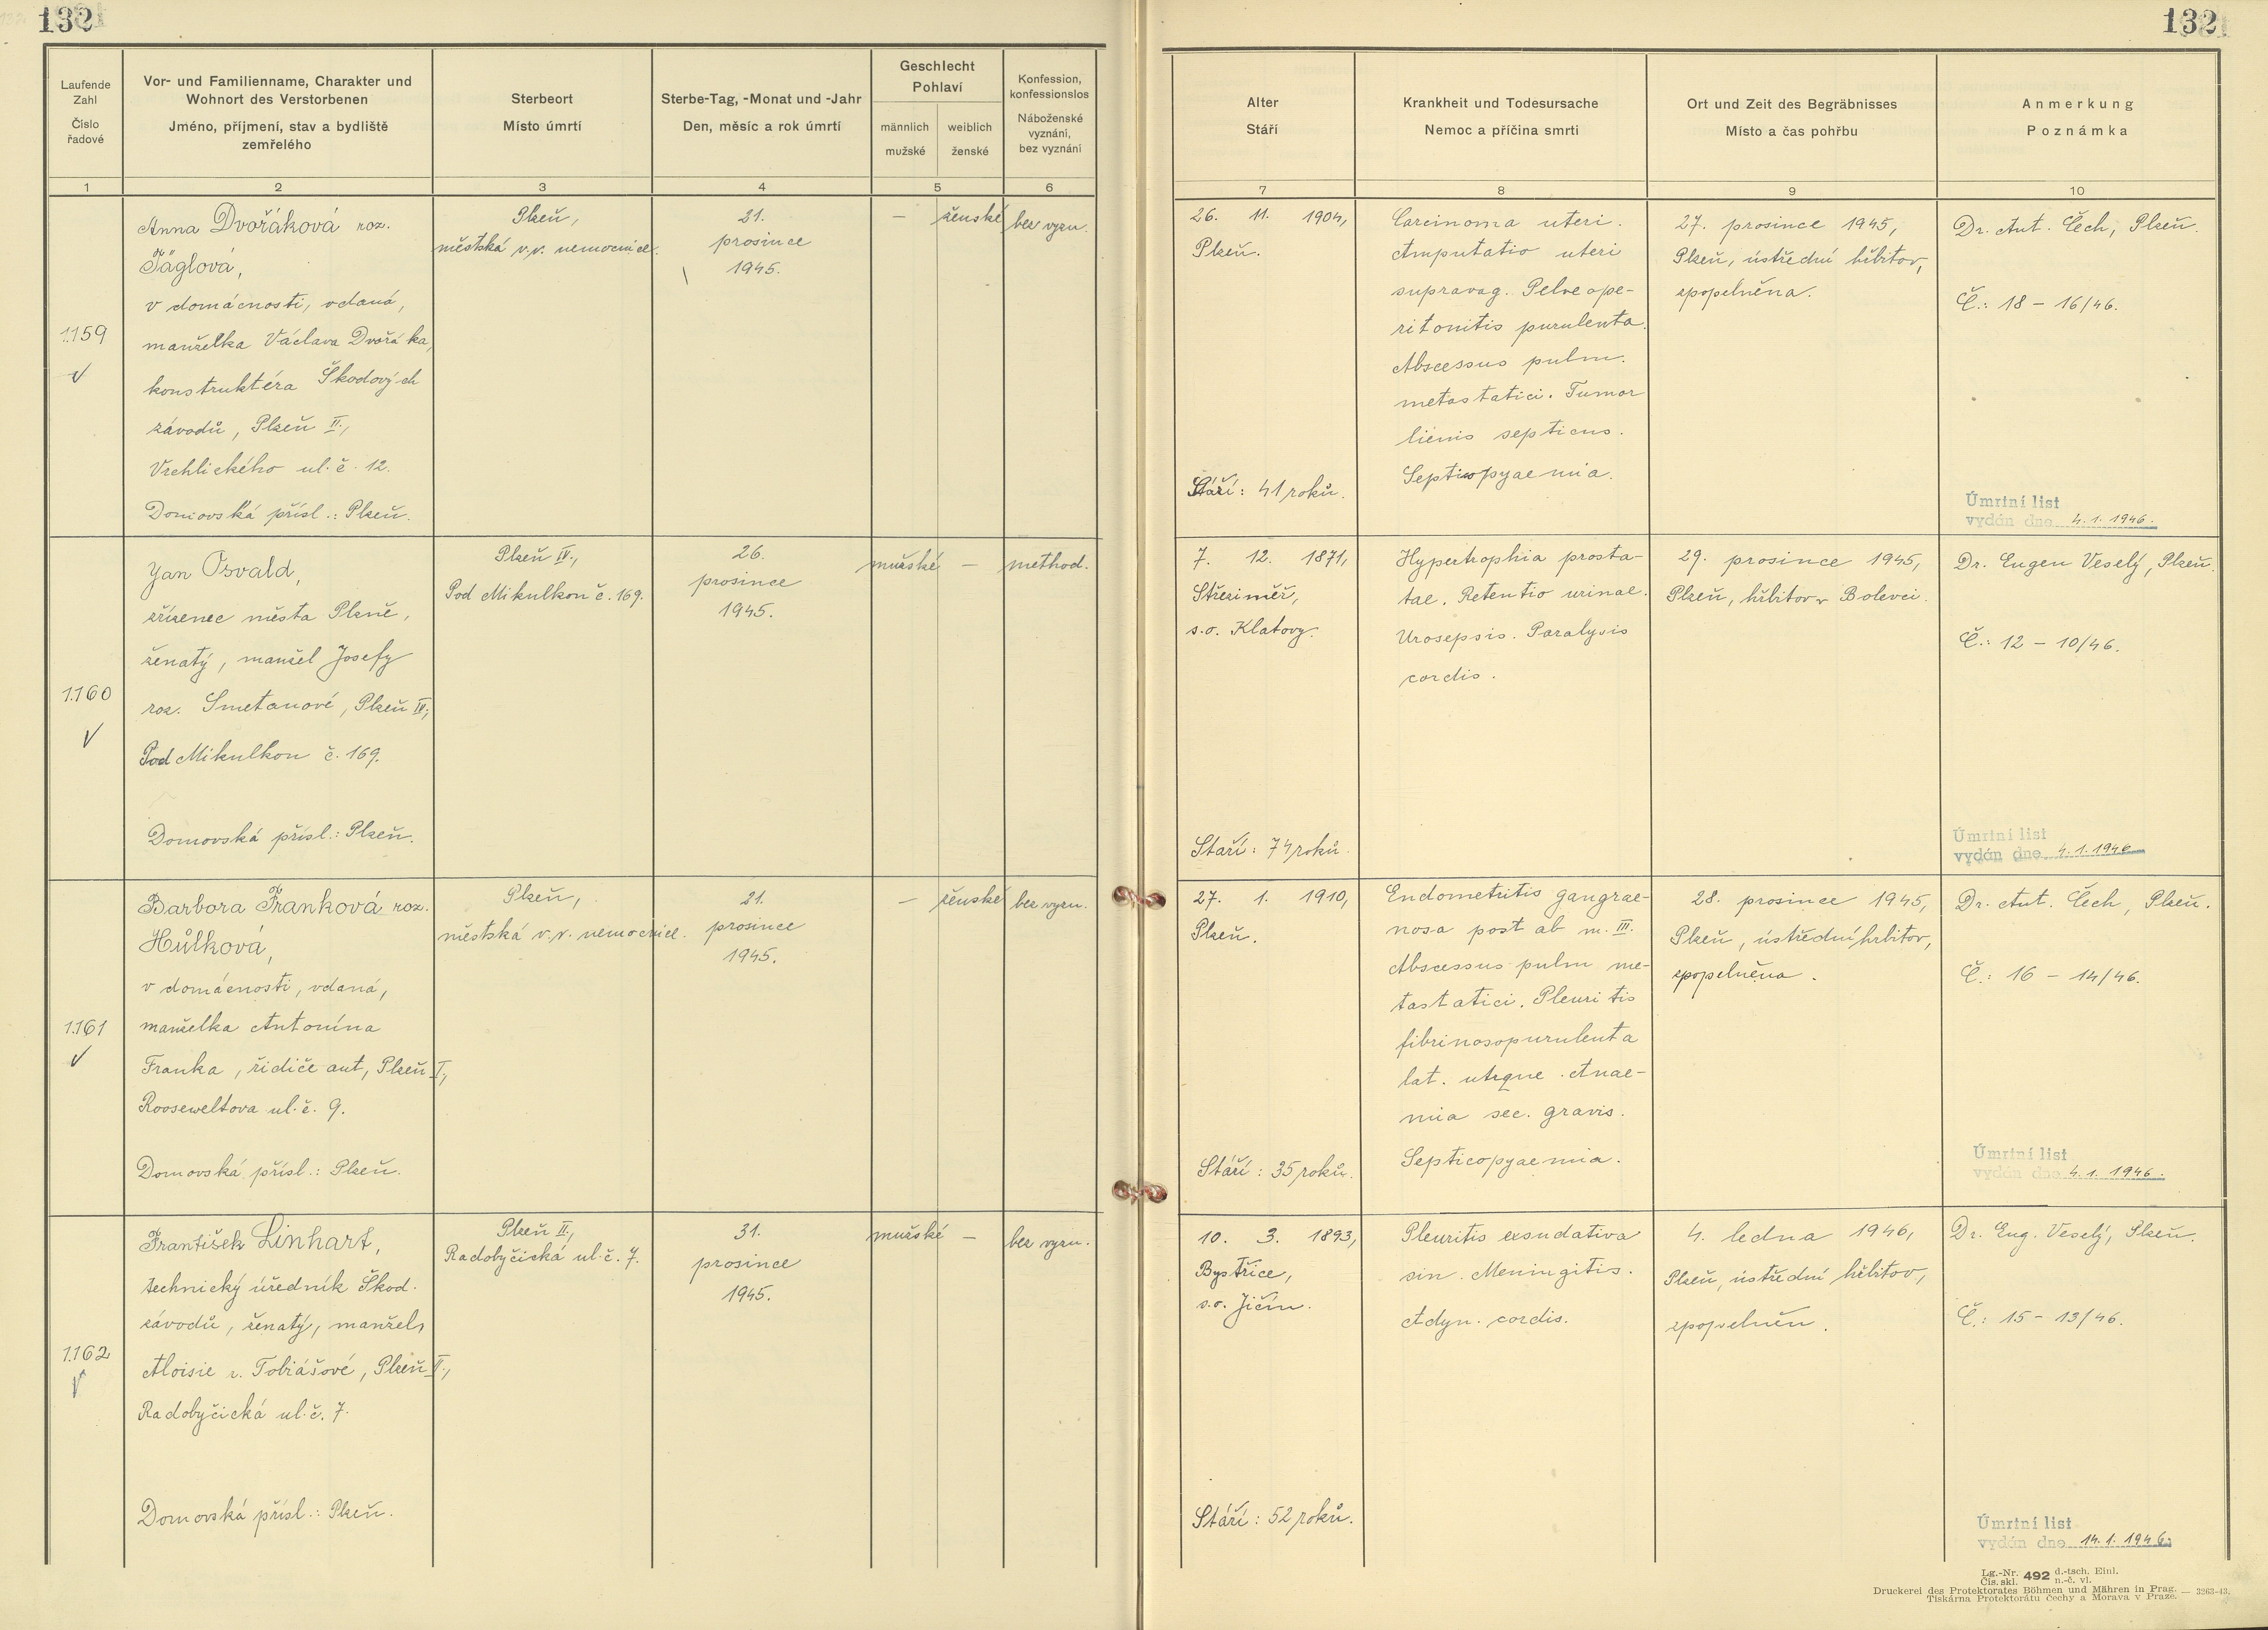 132
132
Laufende
Zahl
Číslo
řadové
Vor- und Familienname, Charakter und
Wohnort des Verstorbenen
Jméno, příjmení, stav a bydliště
zemřelého
Sterbeort
Místo úmrtí
Sterbe-Tag, -Monat und -Jahr
Den, měsíc a rok úmrtí
Geschlecht
Pohlaví
männlich
mužské
weiblich
ženské
Konfession,
konfessionslos
Náboženské
vyznání,
bez vyznání
Alter
Stáří
Krankheit und Todesursache
Nemoc a příčina smrti
Ort und Zeit des Begräbnisses
Místo a čas pohřbu
Anmerkung
Poznámka
1
2
3
4
5
6
7
8
9
10
1.159
Anna Dvořáková roz.
Jäglová,
v domácnosti, vdaná,
manželka Václava Dvořáka,
konstruktéra Škodových
závodů, Plzeň II.,
Vrchlického ul. č. 12.
Domovská přísl.: Plzeň.
Plzeň,
městská v.v. nemocnice.
21.
prosince
1945.
— ženské
bez vyzn.
26. 11. 1904,
Plzeň.
Stáří: 41 roků.
Carcinoma uteri.
Amputatio uteri
supravag. Pelveope-
ritonitis purulenta.
Abscessus pulm.
metastatici. Tumor
lienis septicus.
Septicopyaemia.
27. prosince 1945,
Plzeň, ústřední hřbitov,
zpopelněna.
Dr. Ant. Čech, Plzeň.
Č.: 18 – 16/46.
Úmrtní list
vydán dne 4.1.1946.
1.160
Jan Osvald,
zřízenec města Plzně,
ženatý, manžel Josefy
roz. Smetanové, Plzeň IV.,
Pod Mikulkou č. 169.
Domovská přísl.: Plzeň.
Plzeň IV.,
Pod Mikulkou č. 169.
26.
prosince
1945.
mužské —
method.
7. 12. 1871,
Střeziměř,
s.o. Klatovy.
Staří: 74 roků.
Hypertrophia prosta-
tae. Retentio urinae.
Urosepsis. Paralysis
cordis.
29. prosince 1945,
Plzeň, hřbitov v Bolevci.
Dr. Eugen Veselý, Plzeň.
Č.: 12 – 10/46.
Úmrtní list
vydán dne 4.1.1946
1.161
Barbora Franková roz.
Hůlková,
v domácnosti, vdaná,
manželka Antonína
Franka, řidiče aut, Plzeň I.,
Rooseweltova ul. č. 9.
Domovská přísl.: Plzeň.
Plzeň,
městská v.v. nemocnice.
21.
prosince
1945.
— ženské
bez vyzn.
27. 1. 1910,
Plzeň.
Stáří: 35 roků.
Endometritis gangrae-
nosa post ab m. III.
Abscessus pulm me-
tastatici. Pleuritis
fibrinosopurulenta
lat. utrque. Anae-
mia sec. gravis.
Septicopyaemia.
28. prosince 1945,
Plzeň, ústřední hřbitov,
zpopelněna.
Dr. Ant. Čech, Plzeň.
Č.: 16 – 14/46.
Úmrtní list
vydán dne 4.1.1946.
1.162
František Linhart,
technický úředník Škod.
závodů, ženatý, manžel
Aloisie r. Tobiášové, Plzeň II.,
Radobyčická ul. č. 7.
Domovská přísl.: Plzeň.
Plzeň II.,
Radobyčická ul. č. 7.
31.
prosince
1945.
mužské —
bez vyzn.
10. 3. 1893,
Bystřice,
s.o. Jičín.
Stáří: 52 roků.
Pleuritis exsudativa
sin. Meningitis.
Adyn. cordis.
4. ledna 1946,
Plzeň, ústřední hřbitov,
zpopelněn.
Dr. Eug. Veselý, Plzeň.
Č.: 15 – 13/46.
Úmrtní list
vydán dne 14.1.1946.
Lg.-Nr. 492 d.-tsch. Einl.
Čís. skl. n.-č. vl.
Druckerei des Protektorates Böhmen und Mähren in Prag. — 3263-43.
Tiskárna Protektorátu Čechy a Morava v Praze.